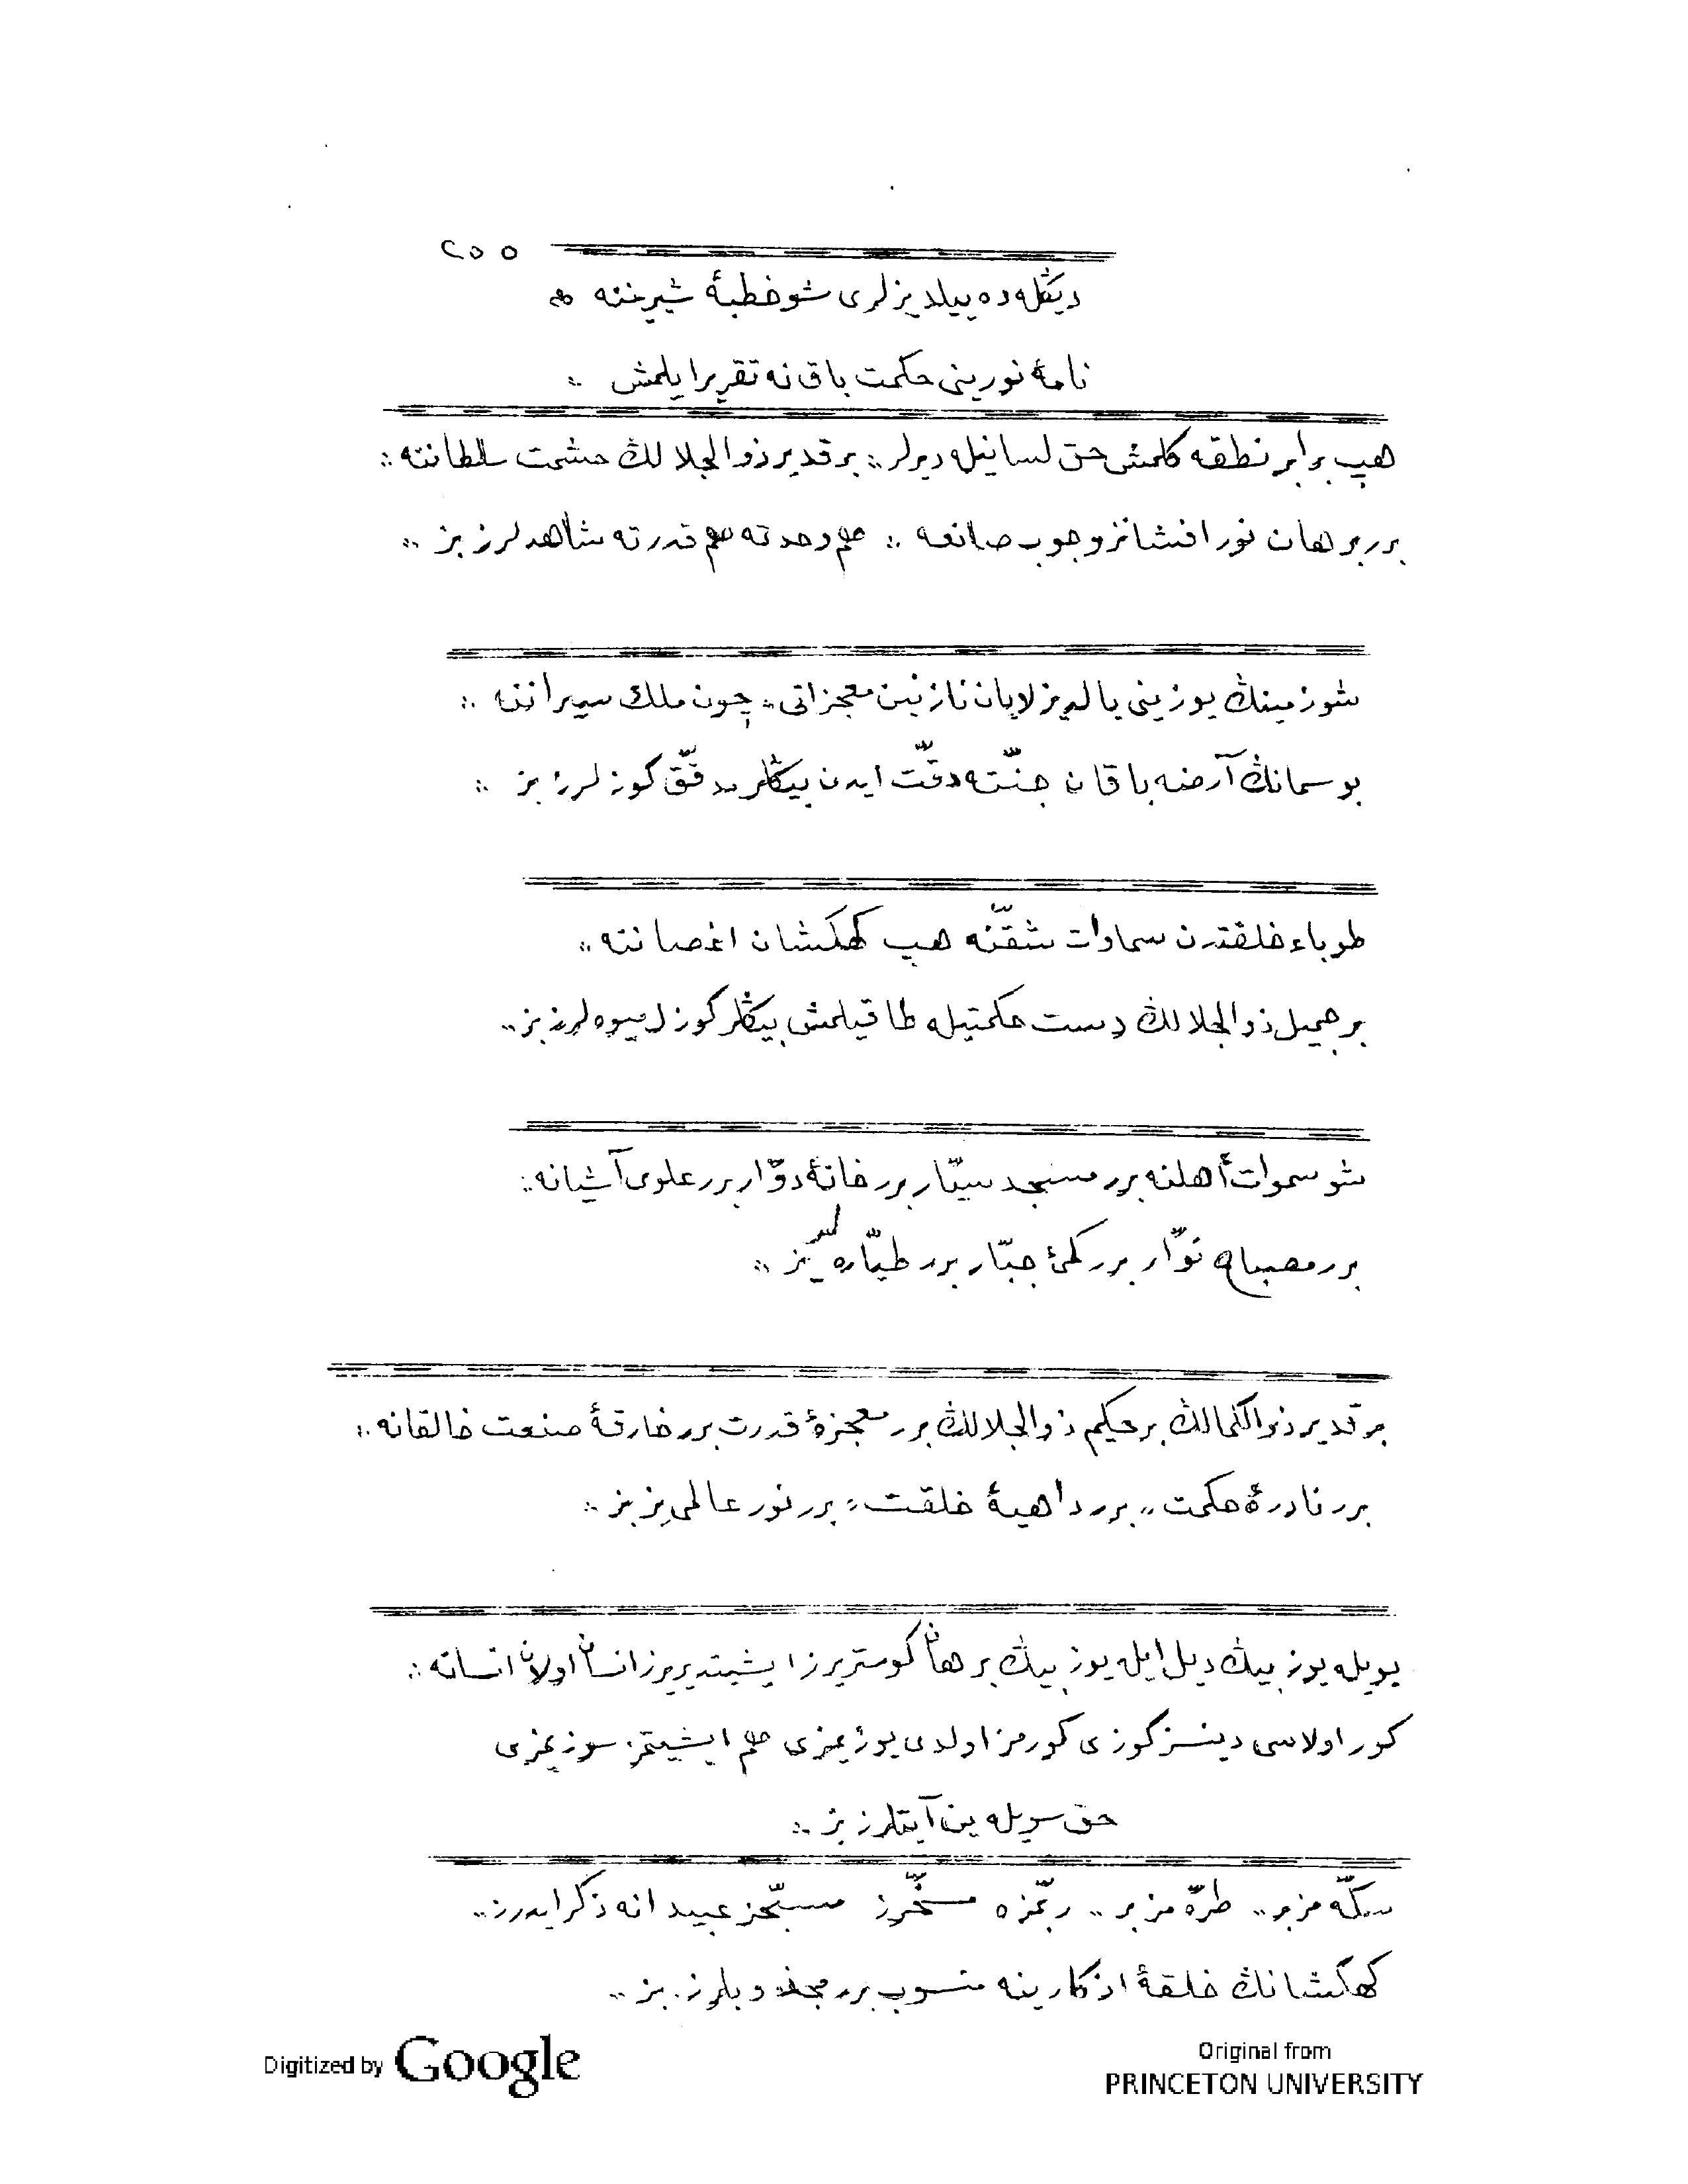 ٢٥٥
دیڭله ده ییلدیزلری شو خطبۀ شیرننه
نامۀ نورینی حکمت باق نه تقریر ایلمش
هپ برابر نطقه کلمش حق لسانیله دیرلر :: بر قدیر ذوالجلالك حشمت سلطاننه ::
بررر برهان نور افشانز وجوب صانعه :: هم وحدته هم قدرته شاهدلرز بز ::
شو زمینڭ یوزینی یالدیزلایان نازنین معجزاتی :: چون ملك سیراننه ::
بو سمانڭ آرضنه باقان جنّته دقّت ایدن بیڭلر مدقّق کوزلرز بز ::
طوباء خلقتدن سماوات شقّنه هپ کهکشان اغصاننه ::
بر جمیل ذوالجلالڭ دست حکمتیله طاقیلمش بیڭلر کوزل میوه لرز بز ::
شو سموات أهلنه برر مسجد سیّار برر خانۀ دوّار برر علوی آشیانه ::
برر مصباح نوّار برر کمئ جبّار برر طیّاره لرز بز ::
بر قدیر ذوالکمالڭ بر حکیم ذوالجلالڭ برر معجزۀ قدرت برر خارقۀ صنعت خالقانه ::
برر نادرۀ حکمت :: برر داهیۀ خلقت :: برر نور عالمی یز بز ::
بویله یوز بیڭ دیل ایله یوز بیڭ برهان کوستریرز ایشیتدیریرز انسان اولان انسانه ::
کور اولاسی دینسز کوزی کورمز اولدی یوزیمزی هم ایشیتمز سوزیمزی
حق سویله ین آیتلرز بز ::
سکّه مز بر :: طرّه مز بر :: ربّمزه مسخّرز مسبّحز عبیدانه ذکر ایدرز ::
کهکشانڭ خلقۀ اذکارینه منسوب برر مجذوبلرز بز ::
Digitized by Google
Original from
PRINCETON UNIVERSITY